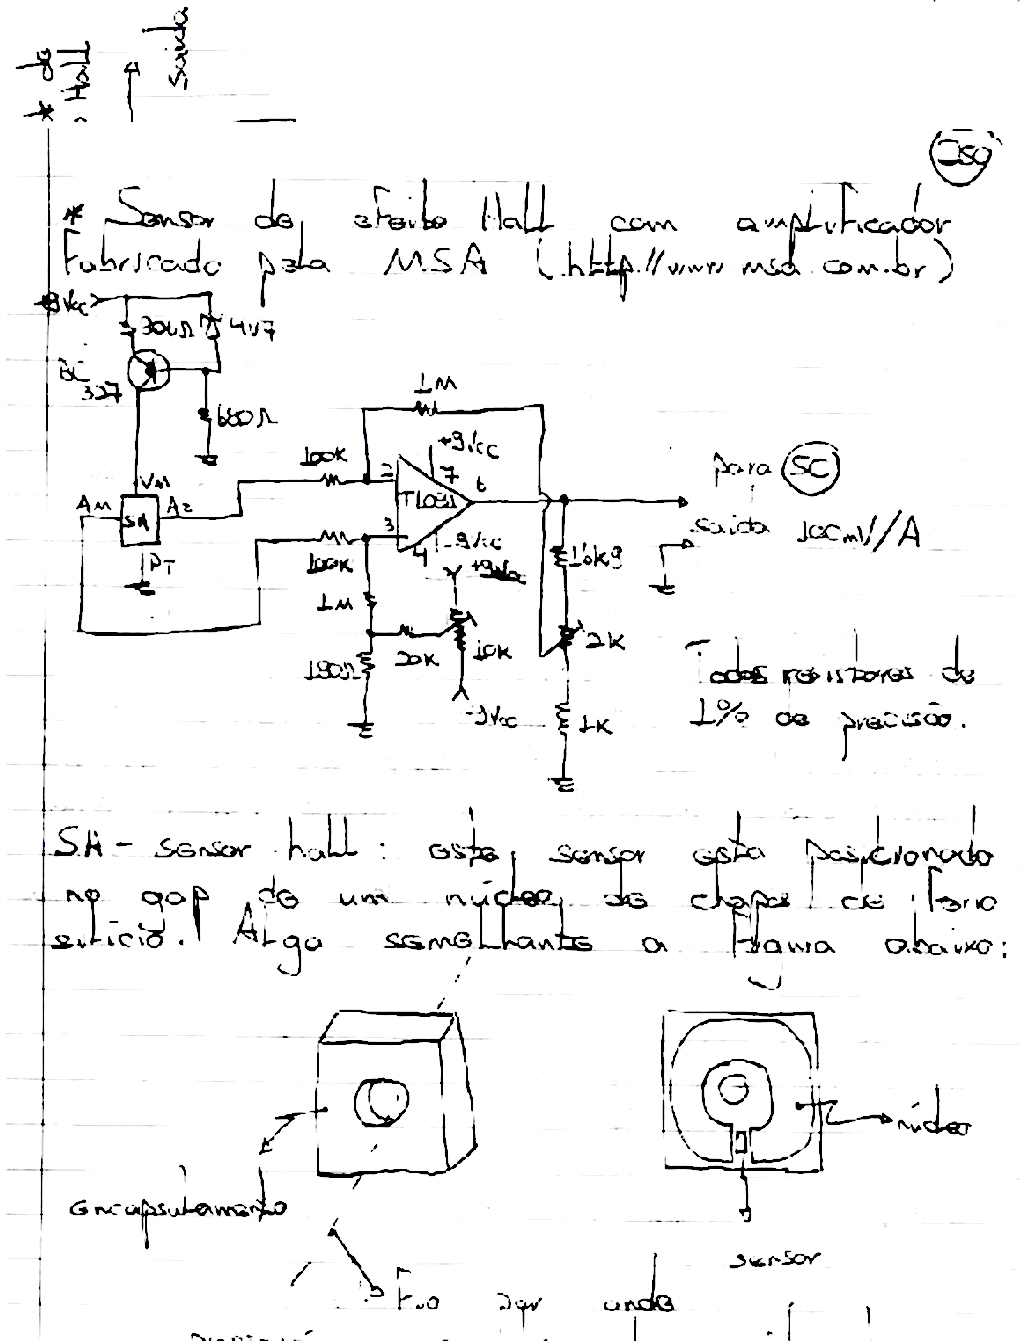 * de
Hall
Saída
* Sensor de efeito Hall com amplificador
Fabricado pela MSA (http://www.msa.com.br)
+9Vcc
4V7
BC
327
680Ω
1M
+9Vcc
100K
2
7
6
TL081
VM
AM
SH
AZ
PT
3
4
-9Vcc
100K
+9Vcc
1M
20K
10K
-9Vcc
2K
1K
para SC
saída 100mV/A
Todos resistores de
1% de precisão.
SH - sensor hall: este sensor esta posicionado
no gap de um núcleo de chapas de ferro
silício. Algo semelhante a figura abaixo:
núcleo
encapsulamento
sensor
Fio por onde